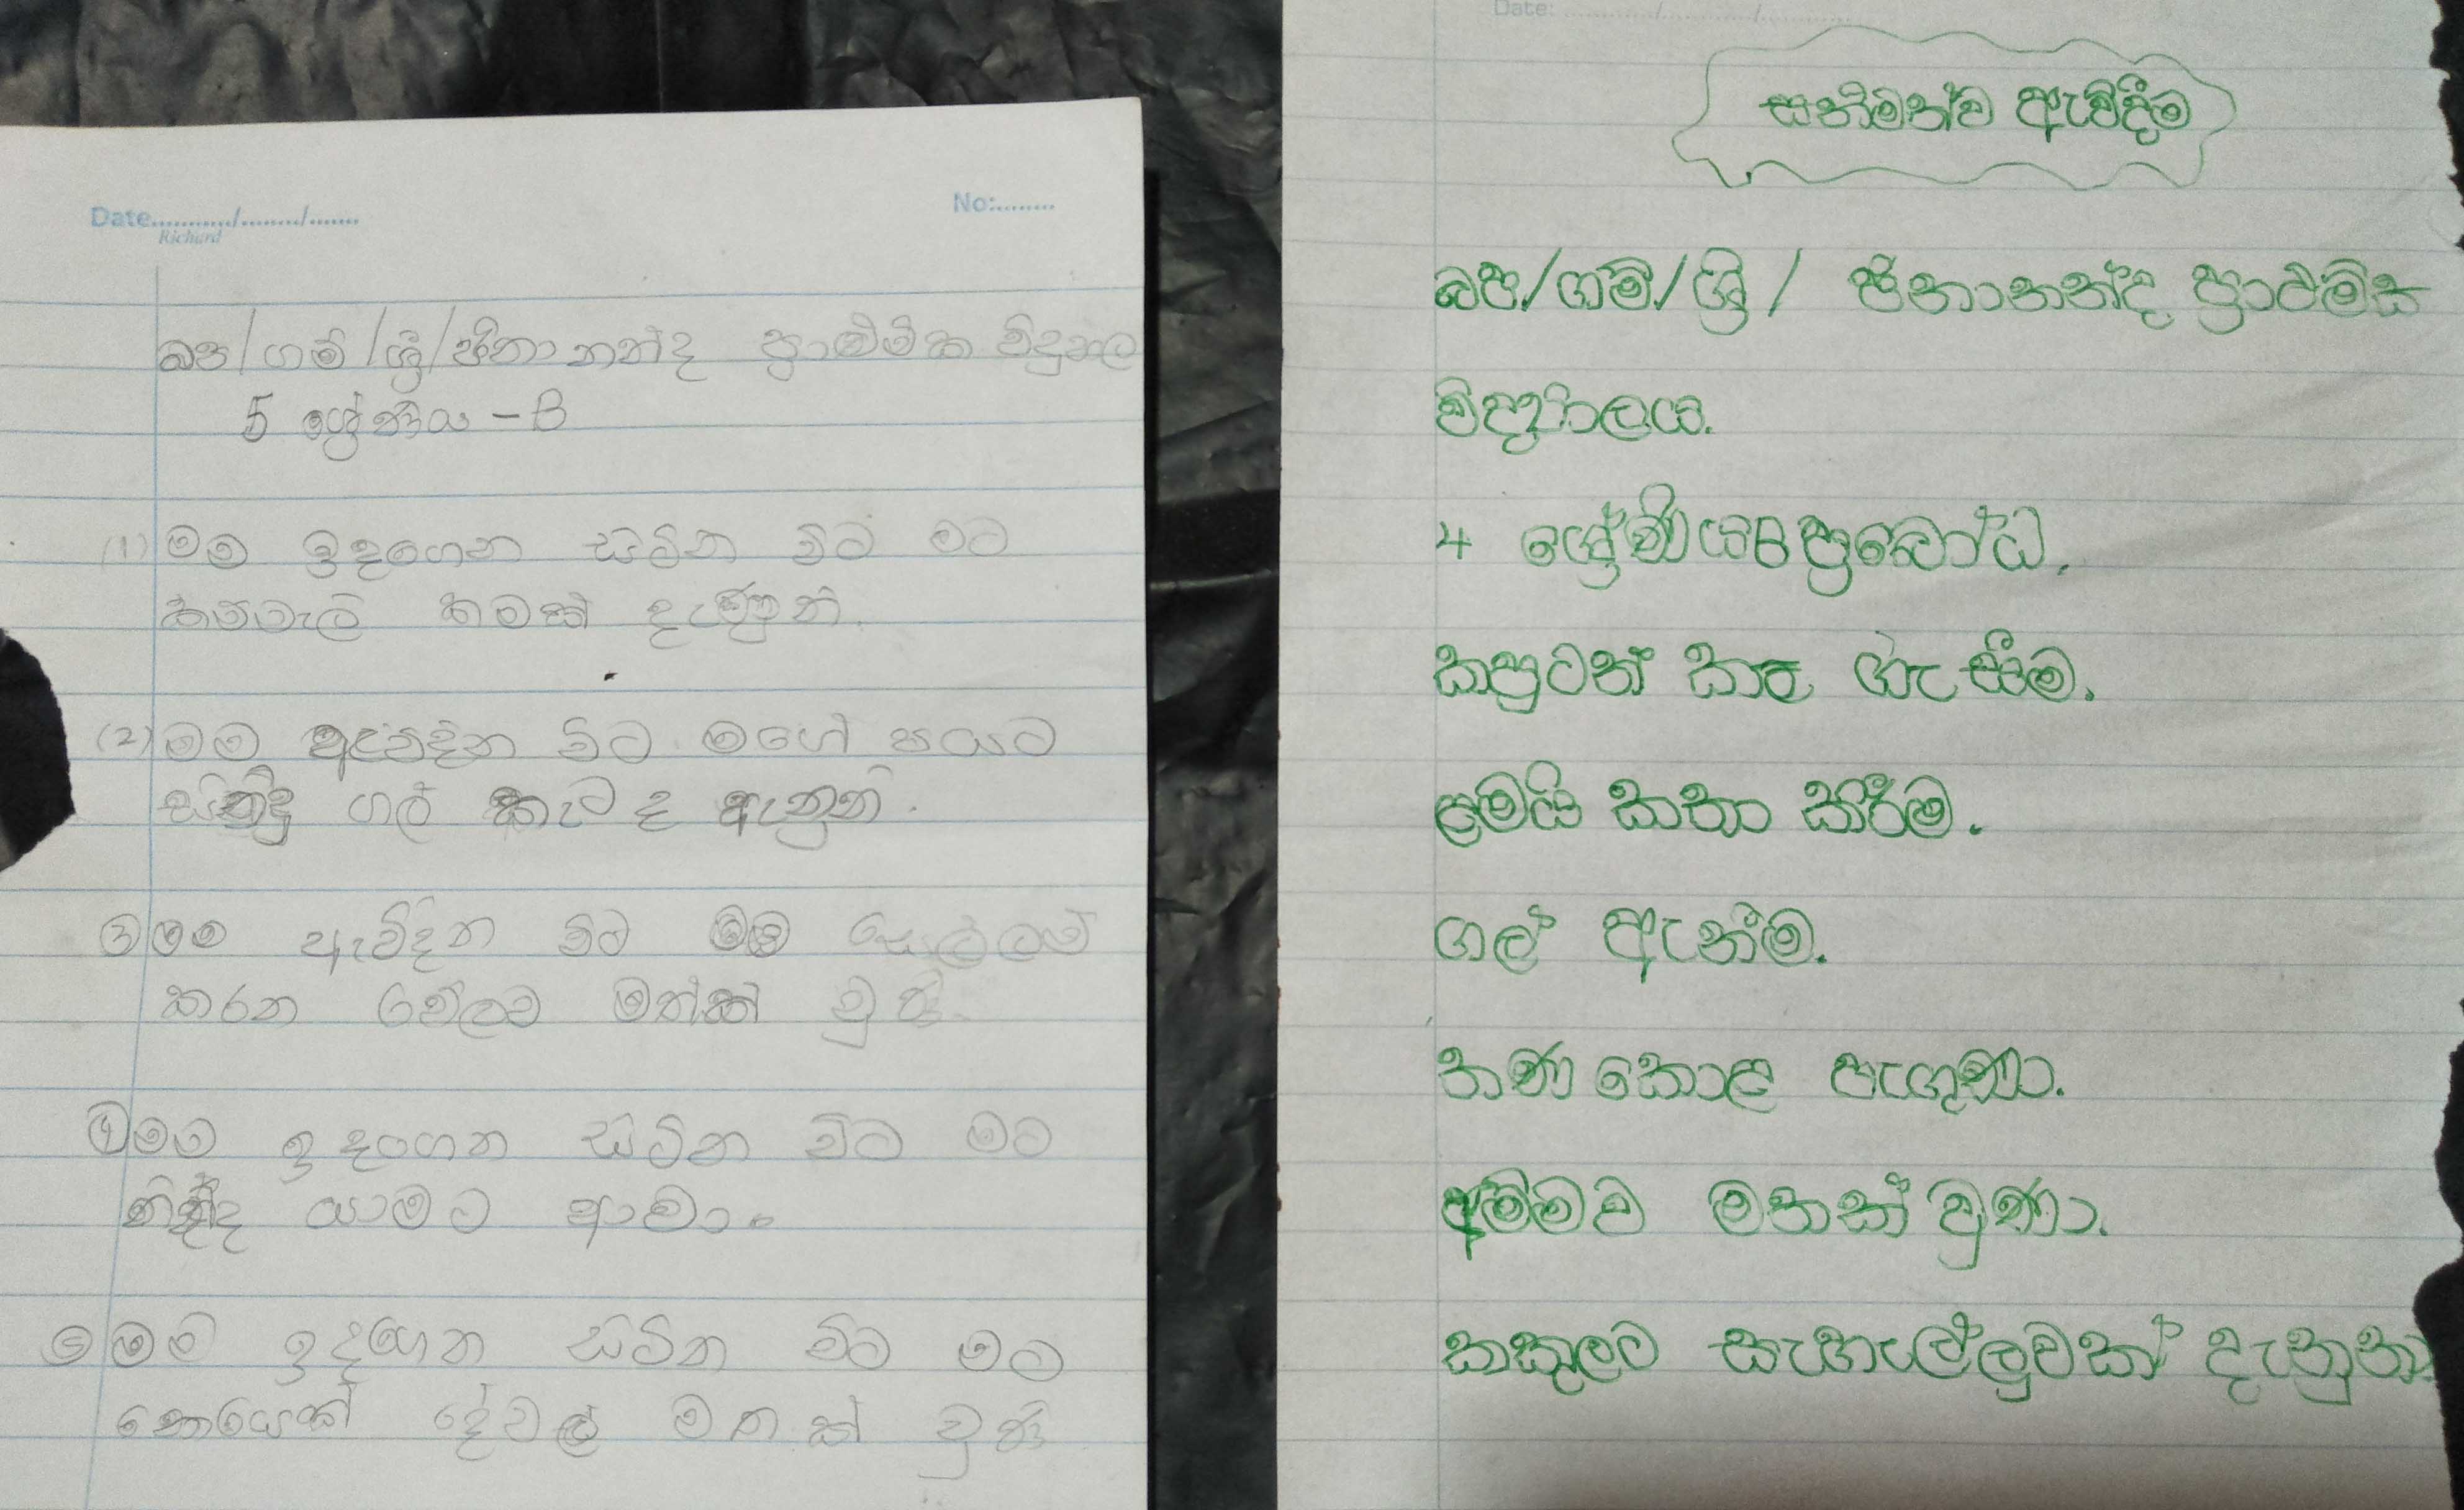 Date............/......../.......
Richard
No:........
බප/ගම්/ශ්‍රී/ජිනානන්ද ප්‍රාථමික විදුහල
5 ශ්‍රේණිය - B
(1) මම ඉදගෙන සිටින විට මට
කම්මැලි කමක් දැණුනි.
(2) මම ඇවිදින විට මගේ පයට
සිනිදු ගල් කැට ද ඇනුනි.
3 මම ඇවිදින විට මම සෙල්ලම්
කරන වෙලාව මතක් වුනි.
4 මම ඉදගෙන සිටින විට මට
නින්ද යාමට ආවා.
5 මම ඉදගෙන සිටින විට මට
නොයෙක් දේවල් මතක් වුණි
Date: ............/............/............
සතිමත්ව ඇවිදීම
බප/ගම්/ශ්‍රී/ ජිනානන්ද ප්‍රාථමික
විද්‍යාලය.
4 ශ්‍රේණියB ප්‍රබෝධ.
කපුටන් කෑ ගැසීම.
ළමයි කතා කිරීම.
ගල් ඇනීම.
තණකොළ පෑගුණා.
අම්මව මතක් වුණා.
කකුලට සැහැල්ලුවක් දැනුනා